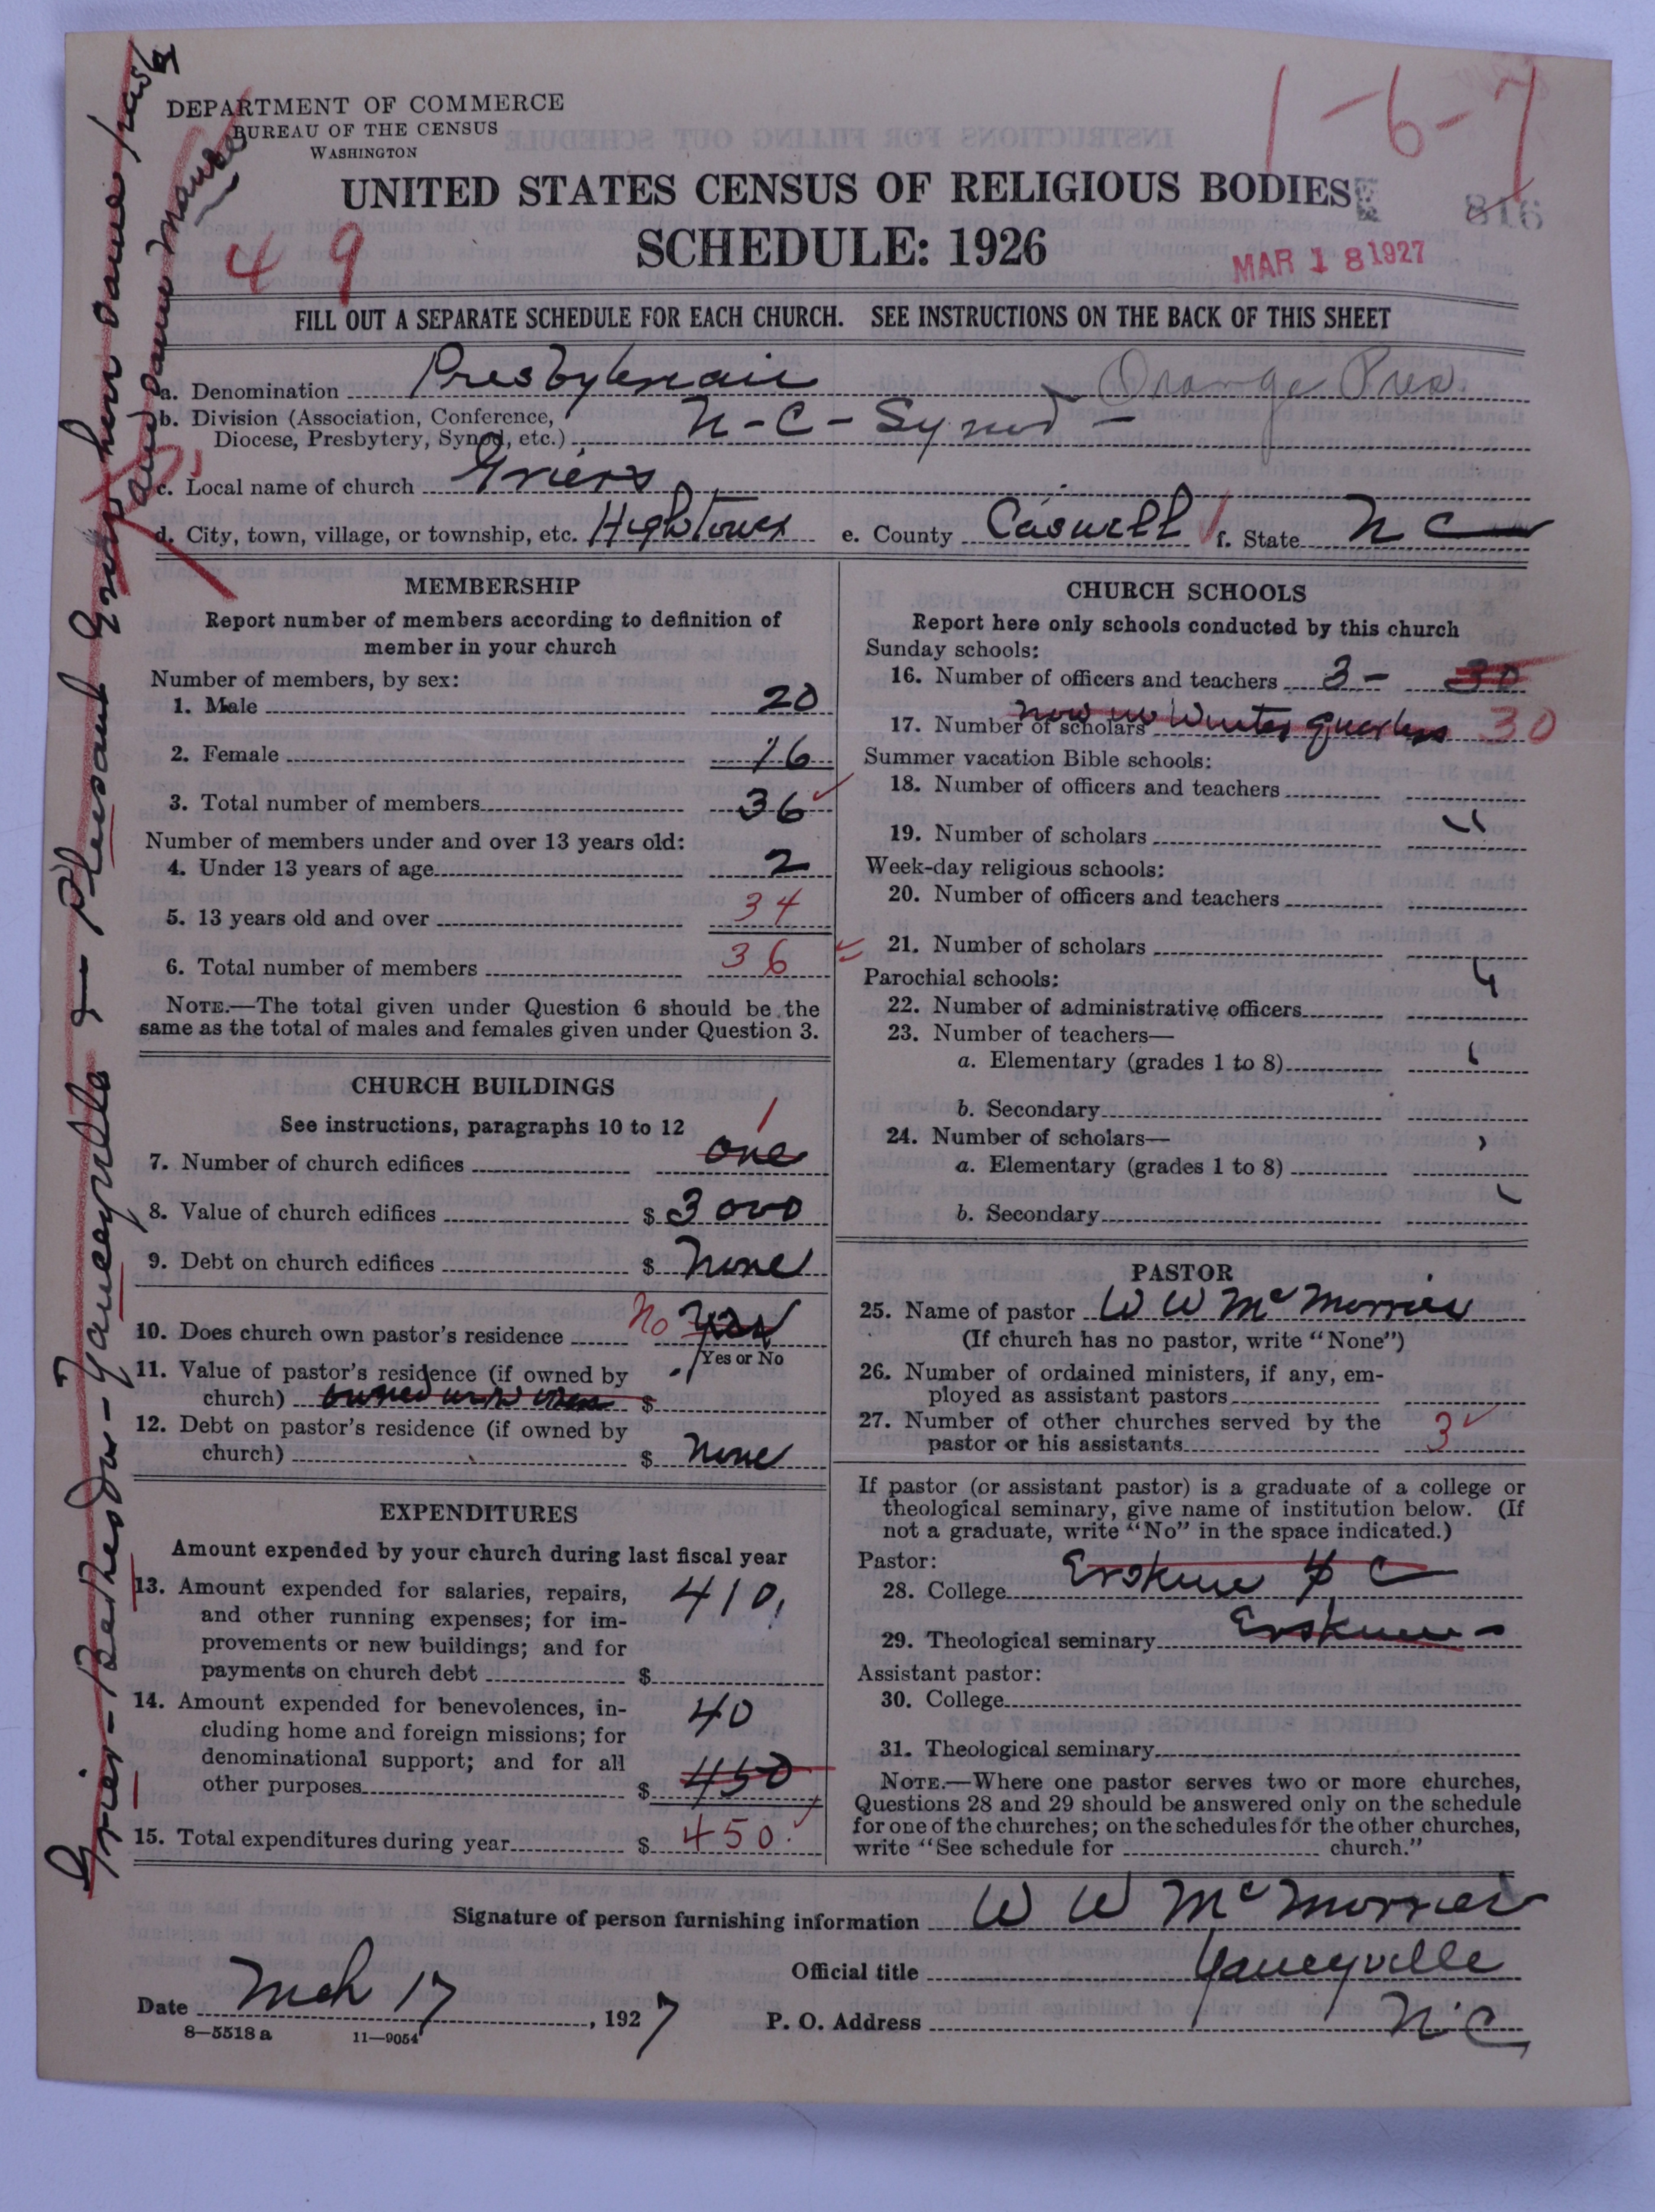 DEPARTMENT OF COMMERCE
BUREAU OF THE CENSUS
WASHINGTON
1-6-7
UNITED STATES CENSUS OF RELIGIOUS BODIES
816
SCHEDULE: 1926
49
MAR 18 1927
FILL OUT A SEPARATE SCHEDULE FOR EACH CHURCH. SEE INSTRUCTIONS ON THE BACK OF THIS SHEET
a. Denomination Presbyterian Orange Pres.
b. Division (Association, Conference,
Diocese, Presbytery, Synod, etc.) N-C-Synod-
c. Local name of church Griers
d. City, town, village, or township, etc. Hightower e. County Caswell f. State N C
MEMBERSHIP
Report number of members according to definition of
member in your church
Number of members, by sex:
1. Male 20
2. Female 16
3. Total number of members 36
Number of members under and over 13 years old:
4. Under 13 years of age 2
5. 13 years old and over 34
6. Total number of members 36
NOTE.—The total given under Question 6 should be the
same as the total of males and females given under Question 3.
CHURCH BUILDINGS
See instructions, paragraphs 10 to 12
7. Number of church edifices one 1
8. Value of church edifices $ 3000
9. Debt on church edifices $ None
10. Does church own pastor's residence No Yes
Yes or No
11. Value of pastor's residence (if owned by
church) owned with $
12. Debt on pastor's residence (if owned by
church) $ None
EXPENDITURES
Amount expended by your church during last fiscal year
13. Amount expended for salaries, repairs, 410
and other running expenses; for im-
provements or new buildings; and for
payments on church debt $
14. Amount expended for benevolences, in- 40
cluding home and foreign missions; for
denominational support; and for all
other purposes $ 450
15. Total expenditures during year $ 450.
CHURCH SCHOOLS
Report here only schools conducted by this church
Sunday schools:
16. Number of officers and teachers 3- 30
17. Number of scholars now in Winter quarters 30
Summer vacation Bible schools:
18. Number of officers and teachers
19. Number of scholars "
Week-day religious schools:
20. Number of officers and teachers
21. Number of scholars
Parochial schools:
22. Number of administrative officers
23. Number of teachers—
a. Elementary (grades 1 to 8)
b. Secondary
24. Number of scholars—
a. Elementary (grades 1 to 8)
b. Secondary
PASTOR
25. Name of pastor W W McMorries
(If church has no pastor, write "None")
26. Number of ordained ministers, if any, em-
ployed as assistant pastors
27. Number of other churches served by the
pastor or his assistants 3
If pastor (or assistant pastor) is a graduate of a college or
theological seminary, give name of institution below. (If
not a graduate, write "No" in the space indicated.)
Pastor:
28. College Erskine C
29. Theological seminary Erskine-
Assistant pastor:
30. College
31. Theological seminary
NOTE.—Where one pastor serves two or more churches,
Questions 28 and 29 should be answered only on the schedule
for one of the churches; on the schedules for the other churches,
write "See schedule for church."
Signature of person furnishing information W W McMorries
Official title Yanceyville
Date Mch 17, 1927 P. O. Address N.C
8—5518 a 11—9054
Grier-Bethesda-Yanceyville & Plesant Grove
own same
and same Manse